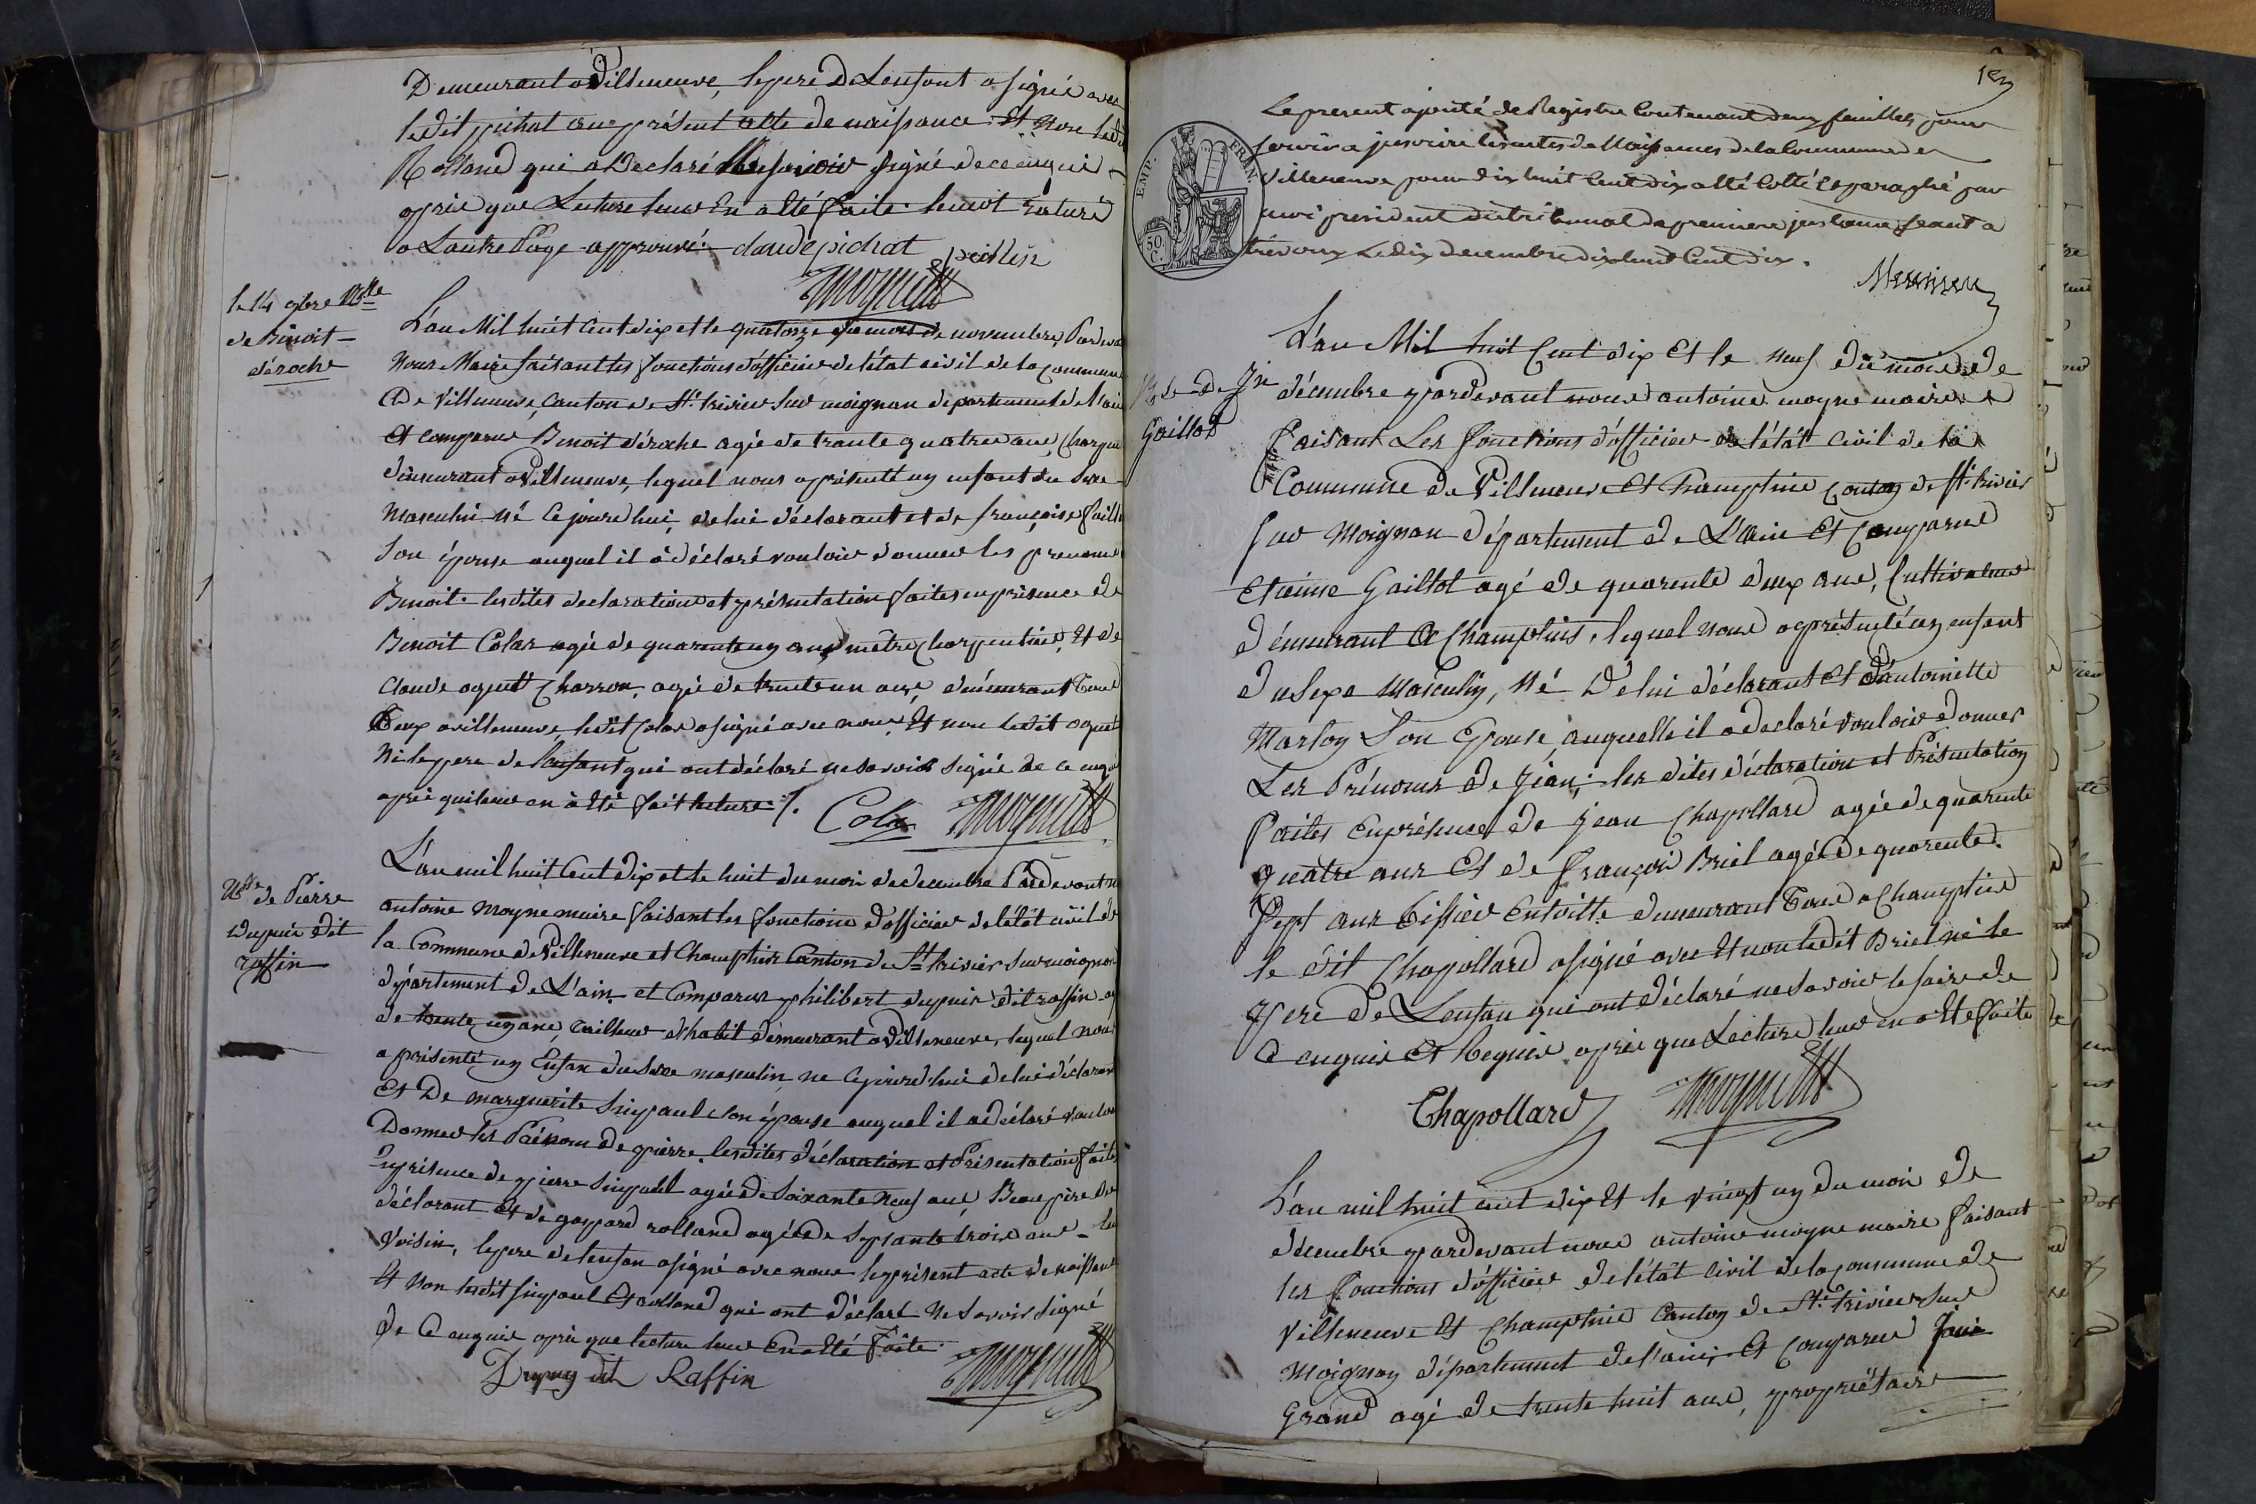 Demeurant a Villeneuve, le pere De Lenfant a signé avec
ledit pichat au présent atte de naissance Et Non ledit
Rolland qui a Declaré signé de ce enquis
aprés que Lecture leur En a Eté faite le mot raturé
a Lautre Page approuvé claude pichat
le 14 9bre Nce
de Benoit
déroche
L'an Mil huit Cent dix et le quatorze du mois de novembre, Pardevant
Nous Maire faisant les fonctions d'officier de l'état civil de la Commune
De Villeneuve, Canton de St. trivier sur moignan département de l'ain
Et comparu Benoit déroche agé de trante quatre ans, Charpen
demeurant a Villeneuve, lequel nous a présenté un enfant du sexe
Masculin Né Ce jourd'hui, de lui déclarant et de françoise
son épouse auquel il a déclaré vouloir donner les prenoms
Benoit. lesdites declaration et présentation faites en présence de
Benoit Colas agé de quarante un ans metre Charpentier, Et de
Claude oquet Charron, agé de trente un ans, demeurant Tous
Deux a villeneuve, ledit Colas a signé avec nous, Et non ledit oquet
Ni le pere de lenfant qui ont déclaré ne savoir signé de ce enquis
aprés qui leur en à Eté fait lecture ./.
Colas
Nce de Pierre
dupuis dit
raffin
L'an mil huit Cent dix et le huit du mois de decembre Pardevant
antoine Moyne maire faisant les fonctions d'officier de l'état civil de
la Commune de Villeneuve et Champtein Canton de St trivier sur moignan
département de L'ain et Comparus philibert dupuis dit raffin
de trente un ans, tailleur d'habit demeurant a Villeneuve, lequel nous
a présenté un Enfan du Sexe masculin ne Cejourd'hui de lui déclarant
Et De marguerite Simpaul son épouse auquel il a déclaré vouloir
Donner les Prénoms de pierre. lesdites déclaration et Présentation faites
En présence de pierre Simpaul agé de soixante neuf ans Beaupère du
déclarant Et de gaspard rolland agé de septante trois ans
Voisin, le pere de lenfan a signé avec nous le présent acte de naissance
Et Non lesdit simpaul Et rolland qui ont déclaré Ne Savoir signé
De Ce enquis aprés que lecture leur En a Eté faite.
Dupuy dit Raffin
Le present ajouté de Registre Contenant deux feuilles pour
servir a inscrire les actes de Naissances de la Commune de
Villeneuve pour dix huit Cent dix a été Cotté et paraphé par
moi president du tribunal de premiere instance seant a
trévoux Le dix decembre dix huit Cent dix.
EMP. FRAN.
50. C.
Nce De Jn
Gaillot
L'an Mil huit Cent dix Et le neuf du mois de
décembre pardevant nous antoine moyne maire
faisant Les fonctions d'officier de l'état Civil de la
Commune de Villeneuve Et Champtein Canton de St. trivier
sur Moignan département de L'ain Et Comparu
Etienne Gaillot agé de quarente deux ans, Cultivateur
demeurant a Champteins, lequel nous a présenté un enfant
du sexe Masculin, Né De lui déclarant Et d'antoinette
Marlon Son Epouse, auquelle il a declaré vouloir donner
Les Prénoms de Jean; les dites déclaration et Présentation
faites En présence de jean Chapollard agée de quarente
quatre ans Et de françois Briel agée de quarente
Sept ans Tissier Entoille demeurant Tous a Champtein
le dit Chapollard a signé avec Et non ledit Briel ni le
pere De Lenfan qui ont déclaré ne savoir le faire de
Ce enquis Et Requis aprés que Lecture leur en a Eté faite
Chapollard
L'an mil huit cent dix Et le vingt un du mois de
décembre pardevant nous antoine moyne maire faisant
les fonctions d'officier de l'état civil de la Commune de
Villeneuve Et Champtein Canton de St. trivier sur
Moignan département de l'ain, Et Comparu
Grand agé de trente huit ans, propriétaire